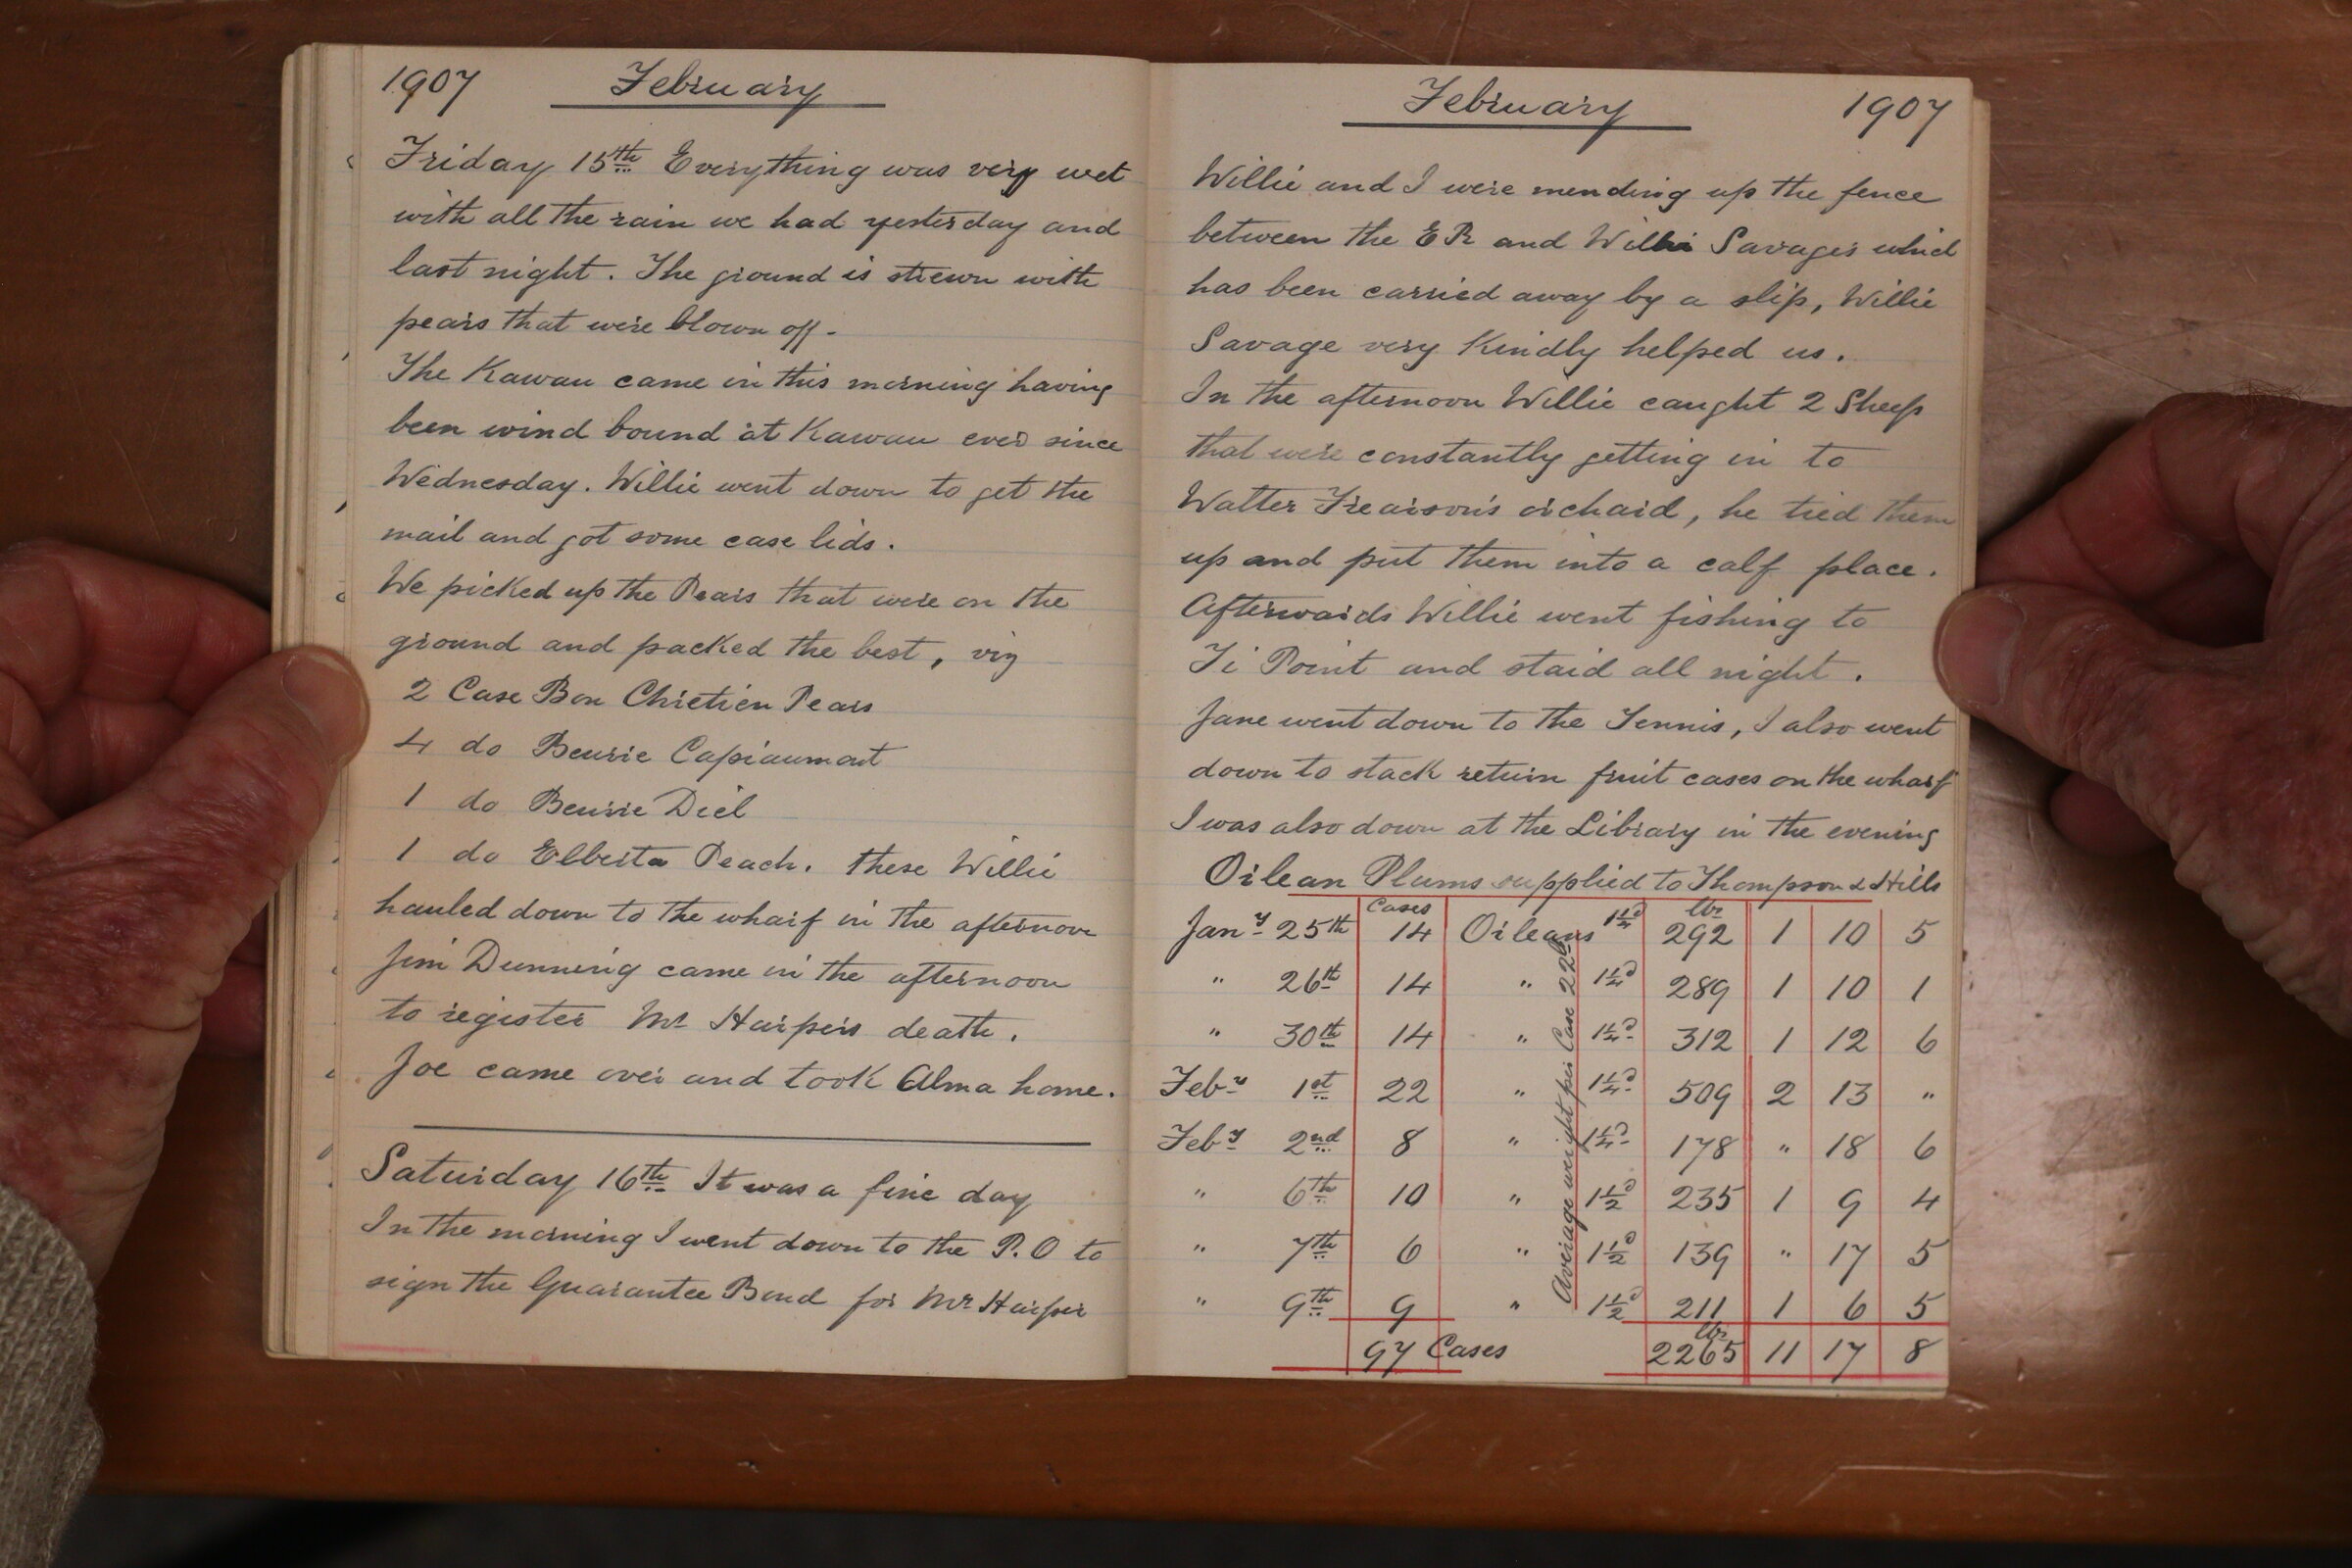 1907 February
Friday 15th Everything was very wet
with all the rain we had yesterday and
last night. The ground is strewn with
pears that were blown off-
The Kawau came in this morning having
been wind bound at Kawau ever since
Wednesday. Willie went down to get the
mail and got some case lids.
We picked up the Pears that were on the
ground and packed the best, viz
2 Case Bon Chretien Pears
4 do Beurre Capiaumont
1 do Beurre Diel
1 do Elberta Peach. these Willie
hauled down to the wharf in the afternoon
Jim Dunning came in the afternoon
to register Mr Harpers death.
Joe came over and took Alma home.
Saturday 16th It was a fine day
In the morning I went down to the P.O to
sign the Guarantee Bond for Mr Harper
February 1907
Willie and I were mending up the fence
between the E R and Willie Savages which
has been carried away by a slip, Willie
Savage very kindly helped us.
In the afternoon Willie caught 2 Sheep
that were constantly getting in to
Walter Frearson's orchard, he tied them
up and put them into a calf place.
Afterwards Willie went fishing to
Ti Point and staid all night.
Jane went down to the Tennis, I also went
down to stack return fruit cases on the wharf
I was also down at the Library in the evening
Orlean Plums supplied to Thompson & Hills
Cases lbs
Jany 25th 14 Orleans 1¼d 292 1 10 5
" 26th 14 " 1¼d 289 1 10 1
" 30th 14 " 1¼d 312 1 12 6
Feby 1st 22 " 1¼d 509 2 13 "
Feby 2nd 8 " 1¼d 178 " 18 6
" 6th 10 " 1½d 235 1 9 4
" 7th 6 " 1½d 139 " 17 5
" 9th 9 " 1½d 211 1 6 5
97 Cases 2265 lbs 11 17 8
Average weight per Case 22lb